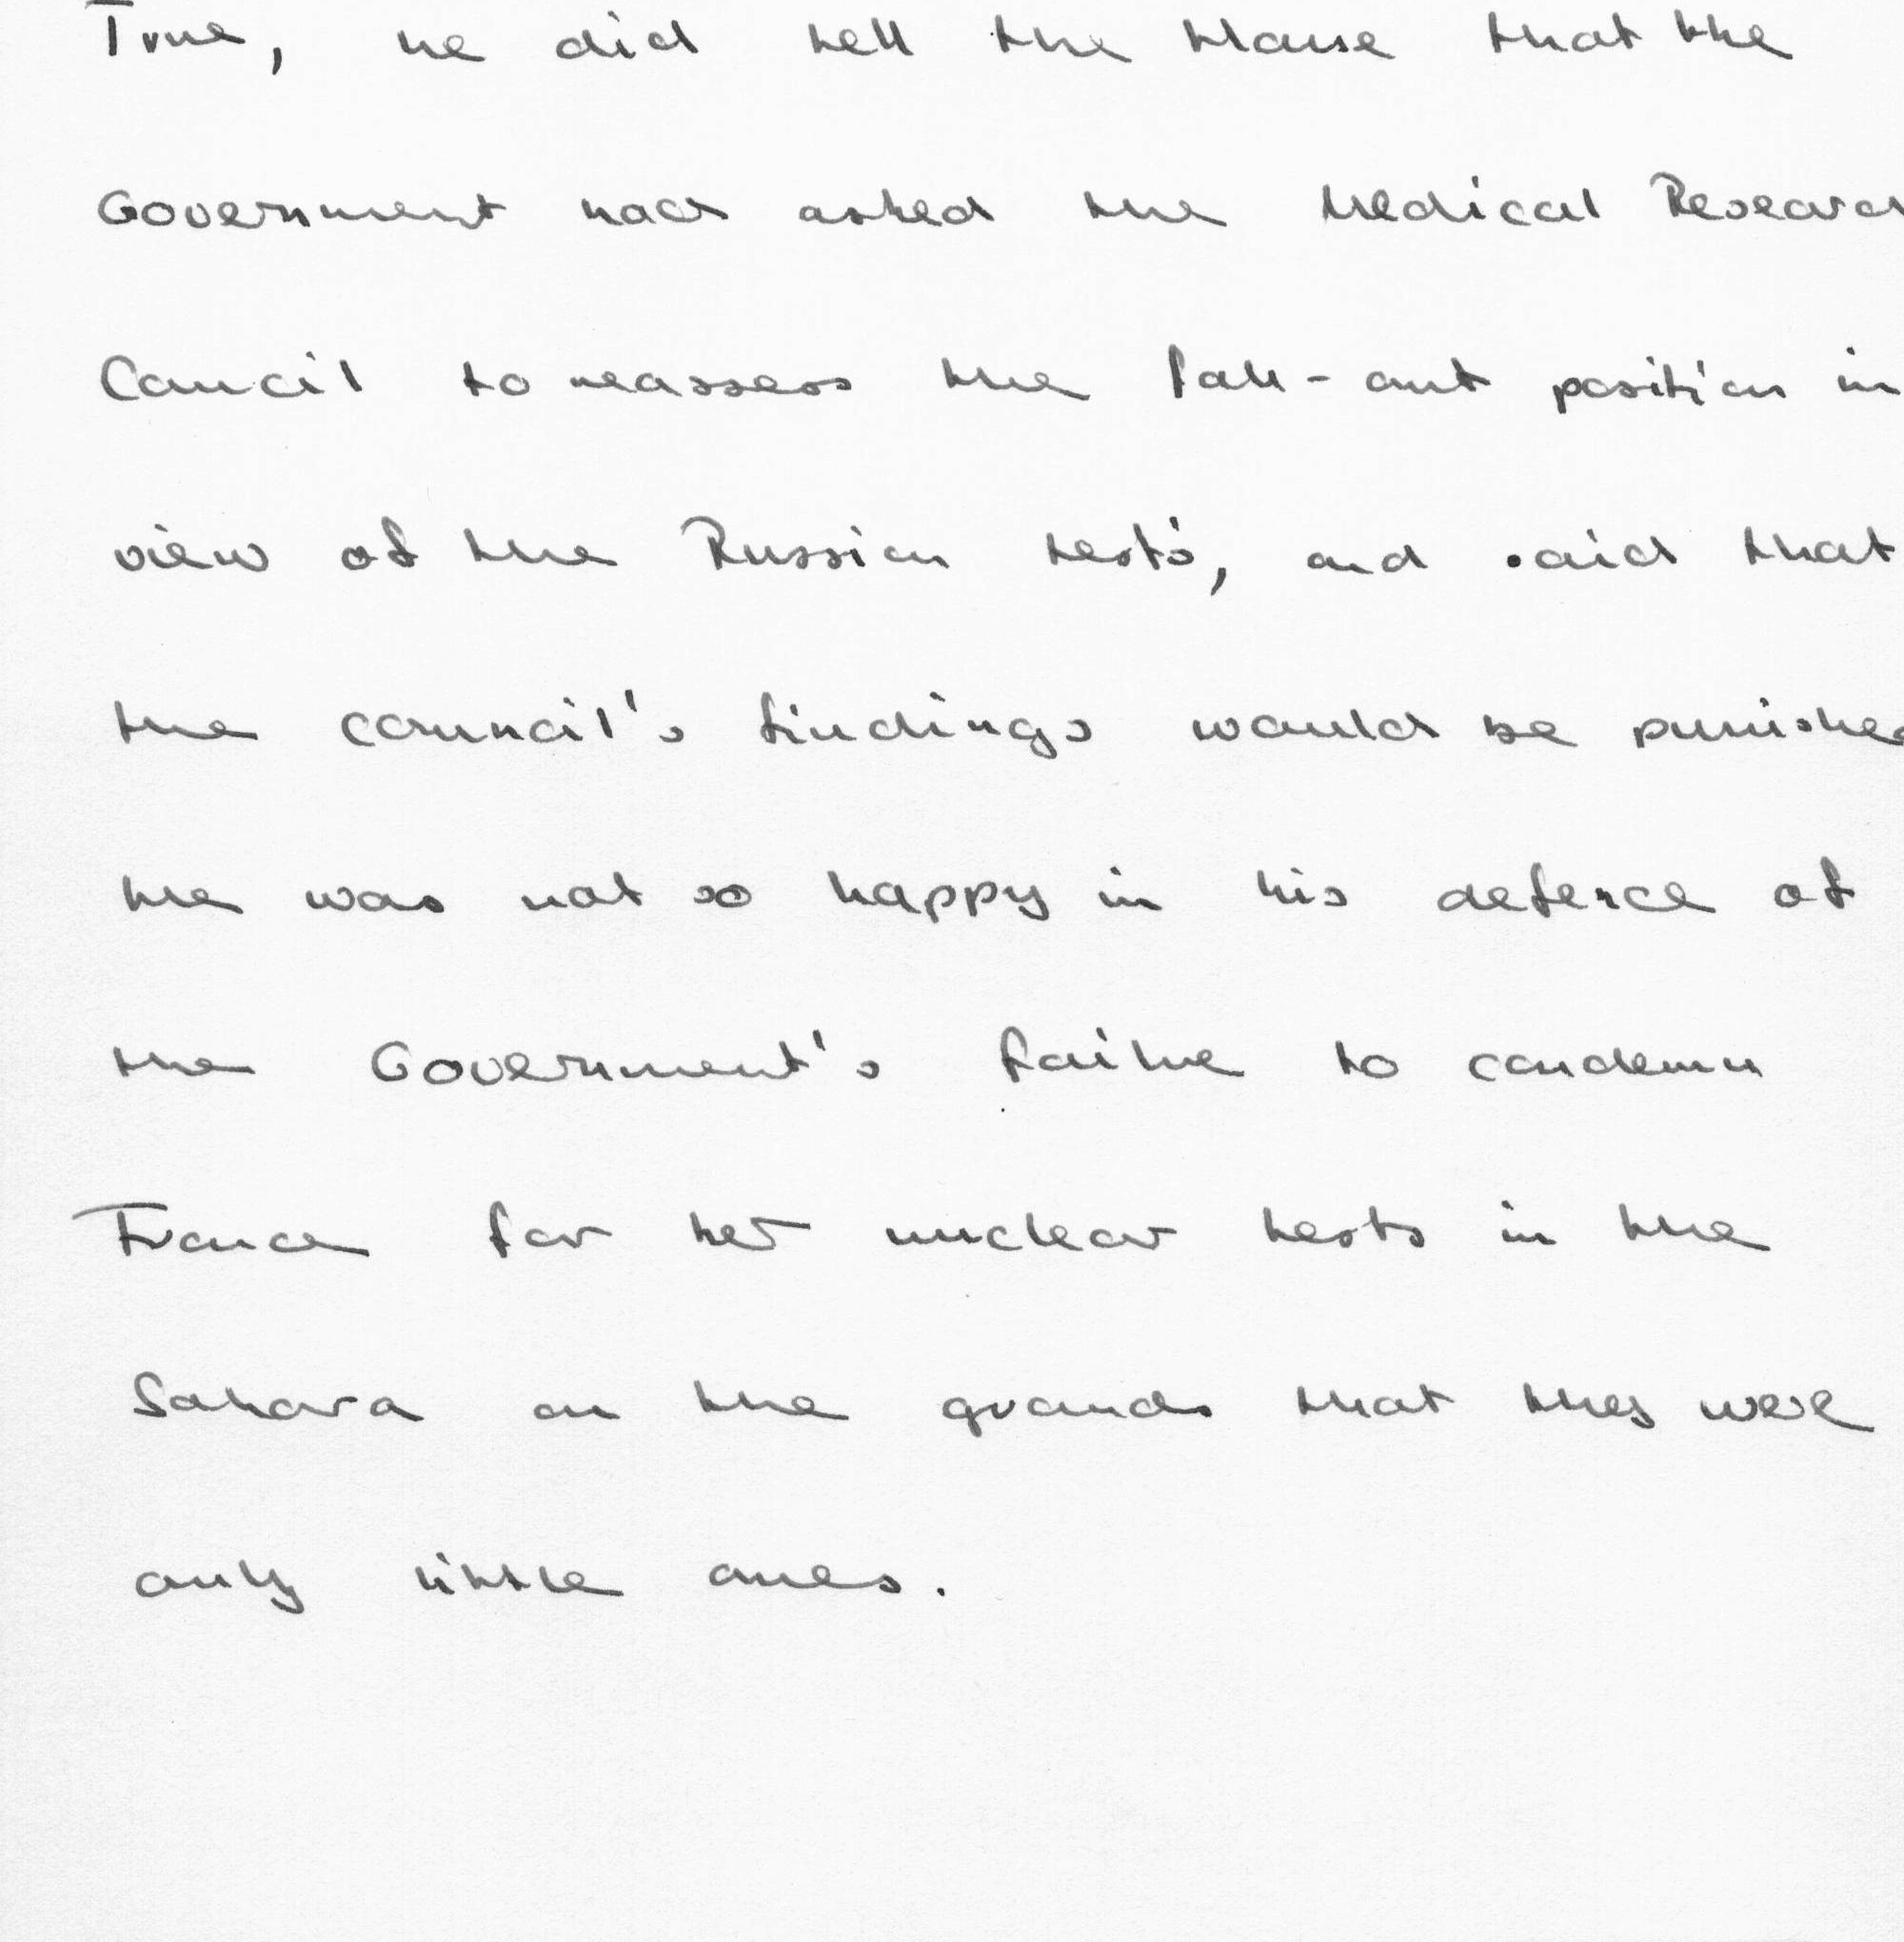 True, he did tell the House that the
Government had asked the Medical Research
Council to reassess the fall-out position in
view of the Russian tests, and said that
the council's findings would be punished
He was not so happy in his defence of
the Government's failure to condemn
France for her nuclear tests in the
Sahara on the grounds that they were
only little ones.